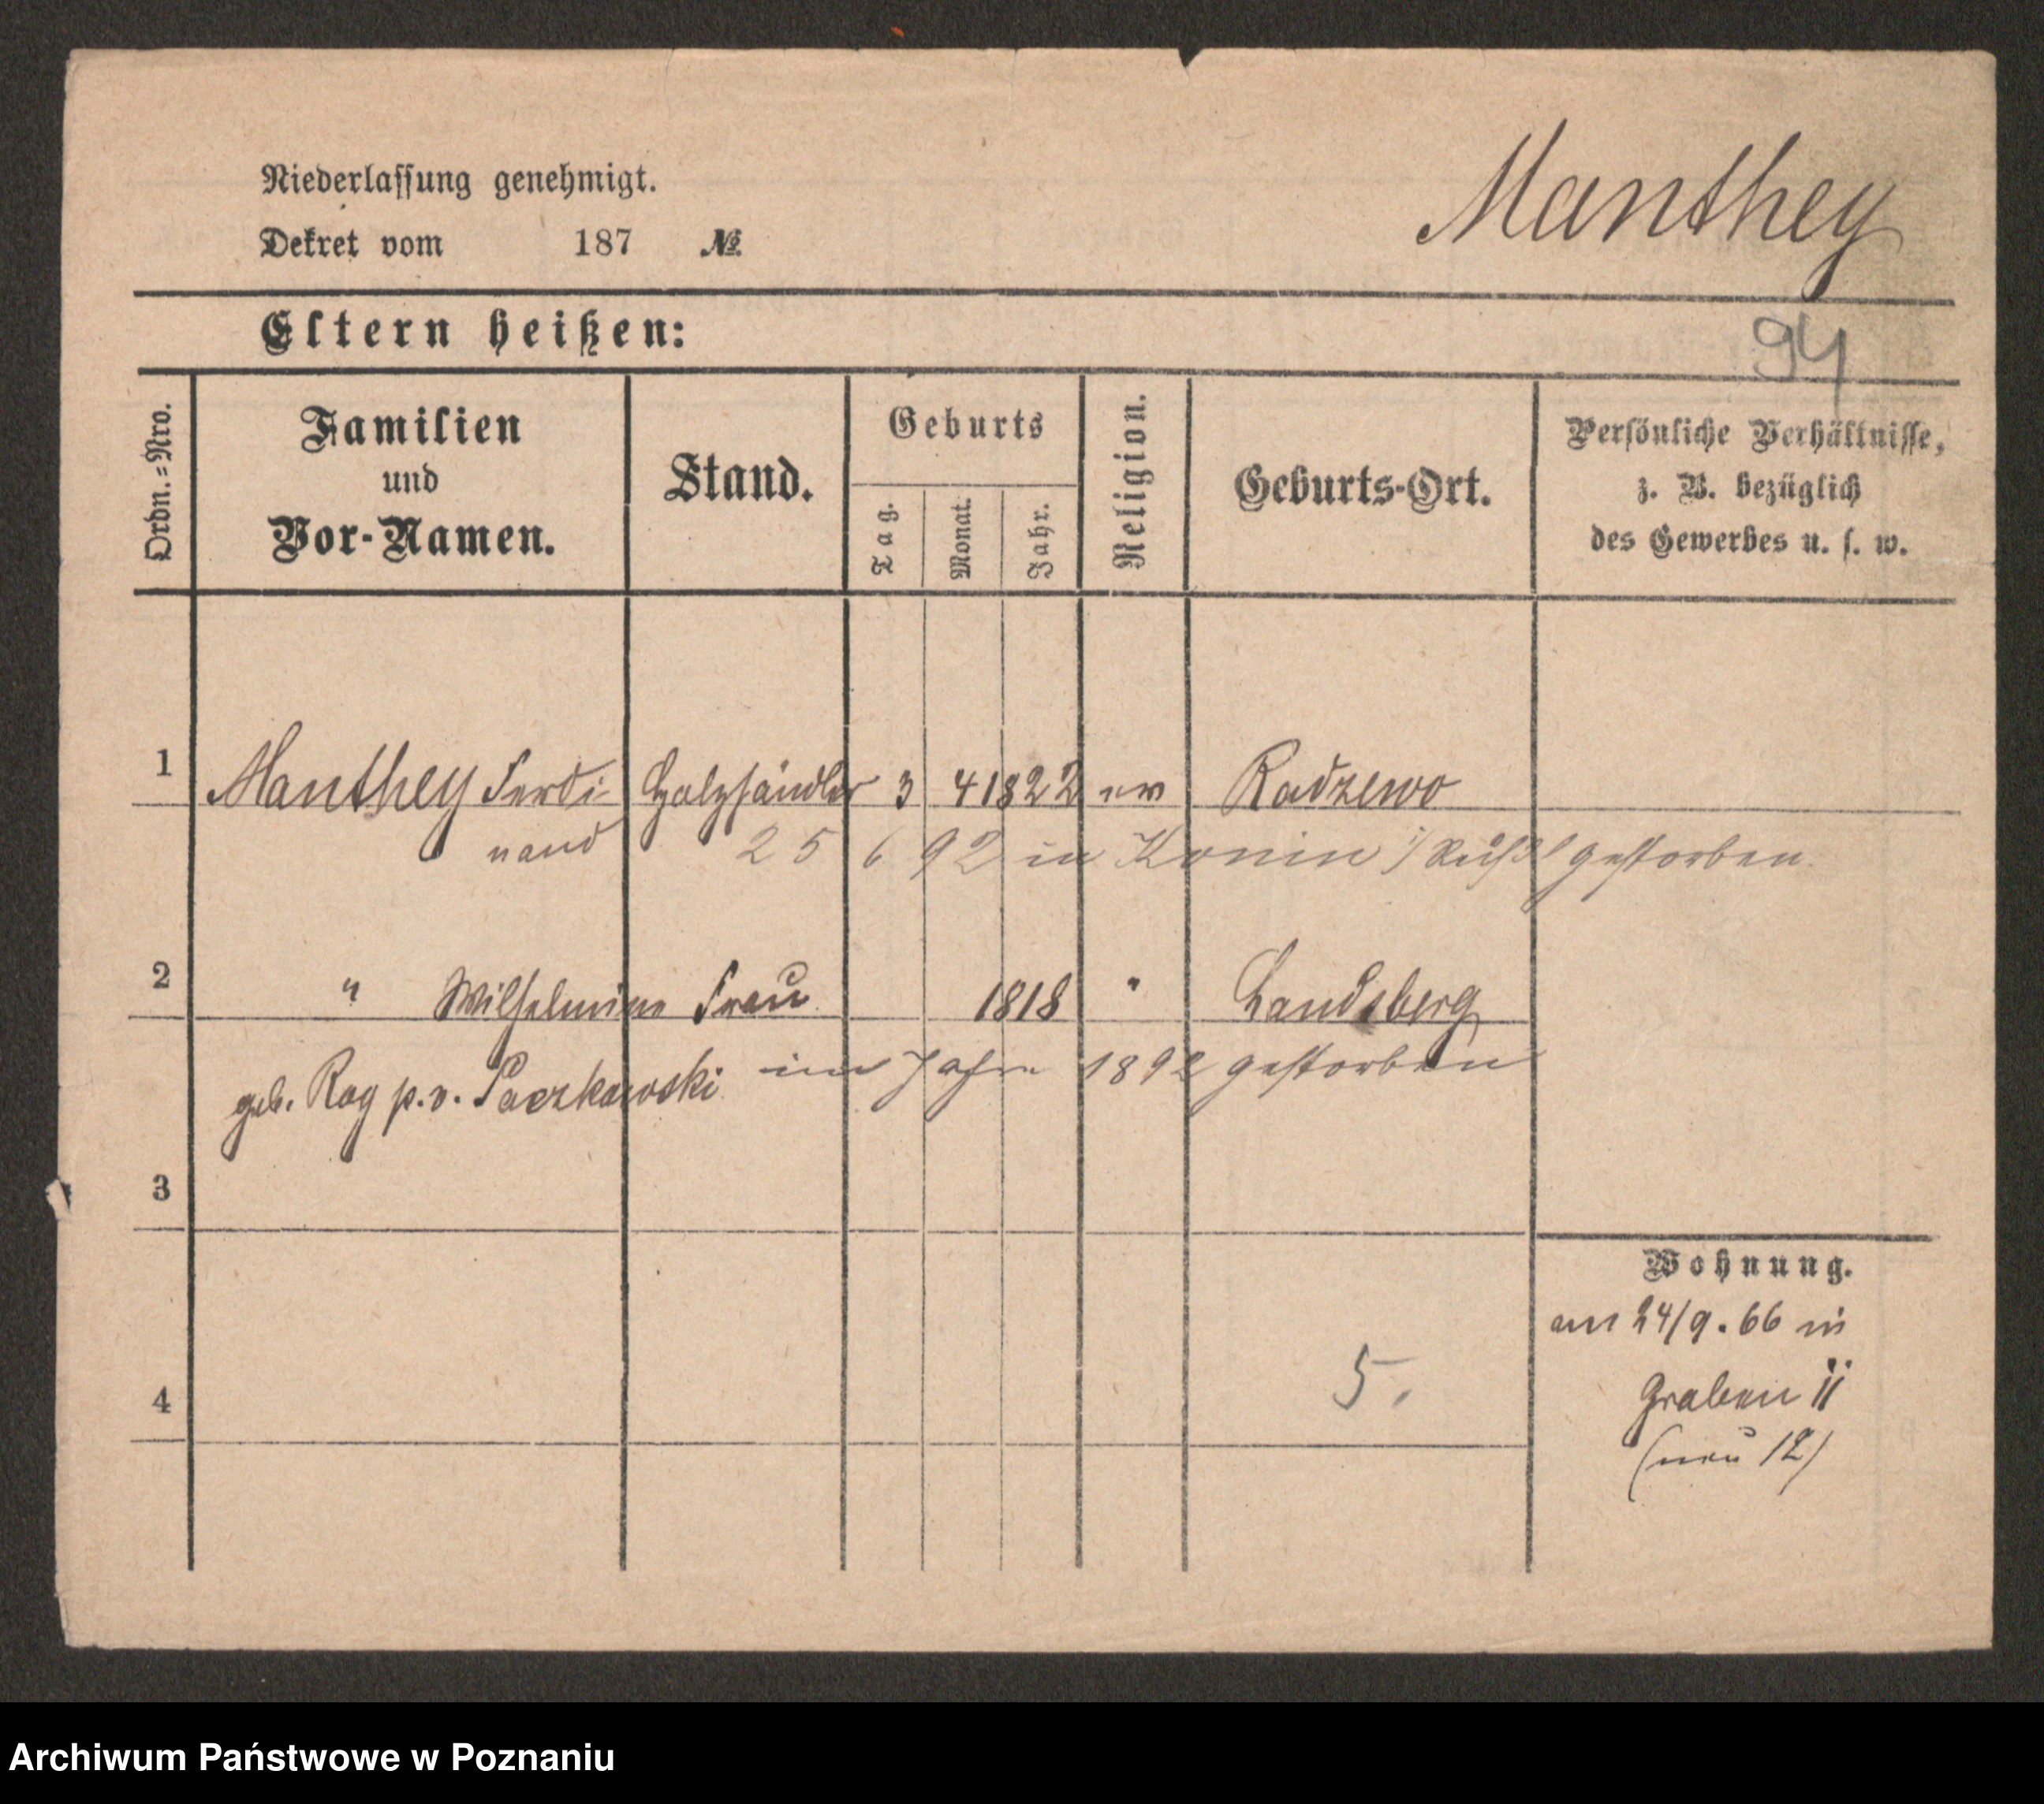 Niederlassung genehmigt.
Manthey
Dekret vom 187 №
Eltern heißen:
94
Ordn.=Nro.
Familien
und
Vor-Namen.
Stand.
Geburts
Tag.
Monat.
Jahr.
Religion.
Geburts-Ort.
Persönliche Verhältnisse,
z. B. bezüglich
des Gewerbes u. s. w.
1 Manthey Ferdi- Holzhändler 3 4 1822 ev Radzewo
nand 25 6 92 in Konin i/Rußl gestorben.
2 " Wilhelmine Frau 1818 " Landsberg
geb. Rog p. v. Paczkowski im Jahre 1892 gestorben
3
Wohnung.
am 24/9. 66 in
4 5. Graben 11
(neu 12)
Archiwum Państwowe w Poznaniu